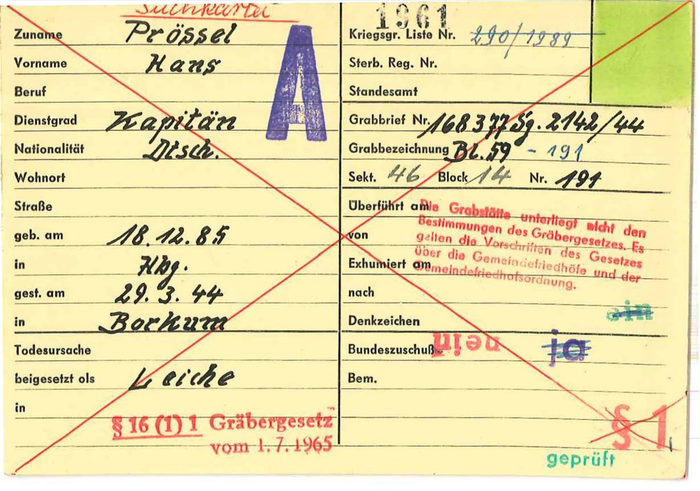 Suchkartei
Zuname Prössel
Vorname Hans
Beruf
Dienstgrad Kapitän
Nationalität Dtsch.
Wohnort
Straße
geb. am 18.12.85
in Hbg.
gest. am 29.3.44
in Borkum
Todesursache
beigesetzt als Leiche
in
§ 16 (1) 1 Gräbergesetz
vom 1.7.1965
A
1961
Kriegsgr. Liste Nr. 290/1989
Sterb. Reg. Nr.
Standesamt
Grabbrief Nr. 168377 Sg. 2142/44
Grabbezeichnung Bl. 59 - 191
Sekt. 46 Block 14 Nr. 191
Überführt am
von
Exhumiert am
nach
Die Grabstätte unterliegt nicht den
Bestimmungen des Gräbergesetzes. Es
gelten die Vorschriften des Gesetzes
über die Gemeindefriedhöfe und der
Gemeindefriedhofsordnung.
Denkzeichen ein
Bundeszuschuß nein ja
Bem.
§ 1
geprüft